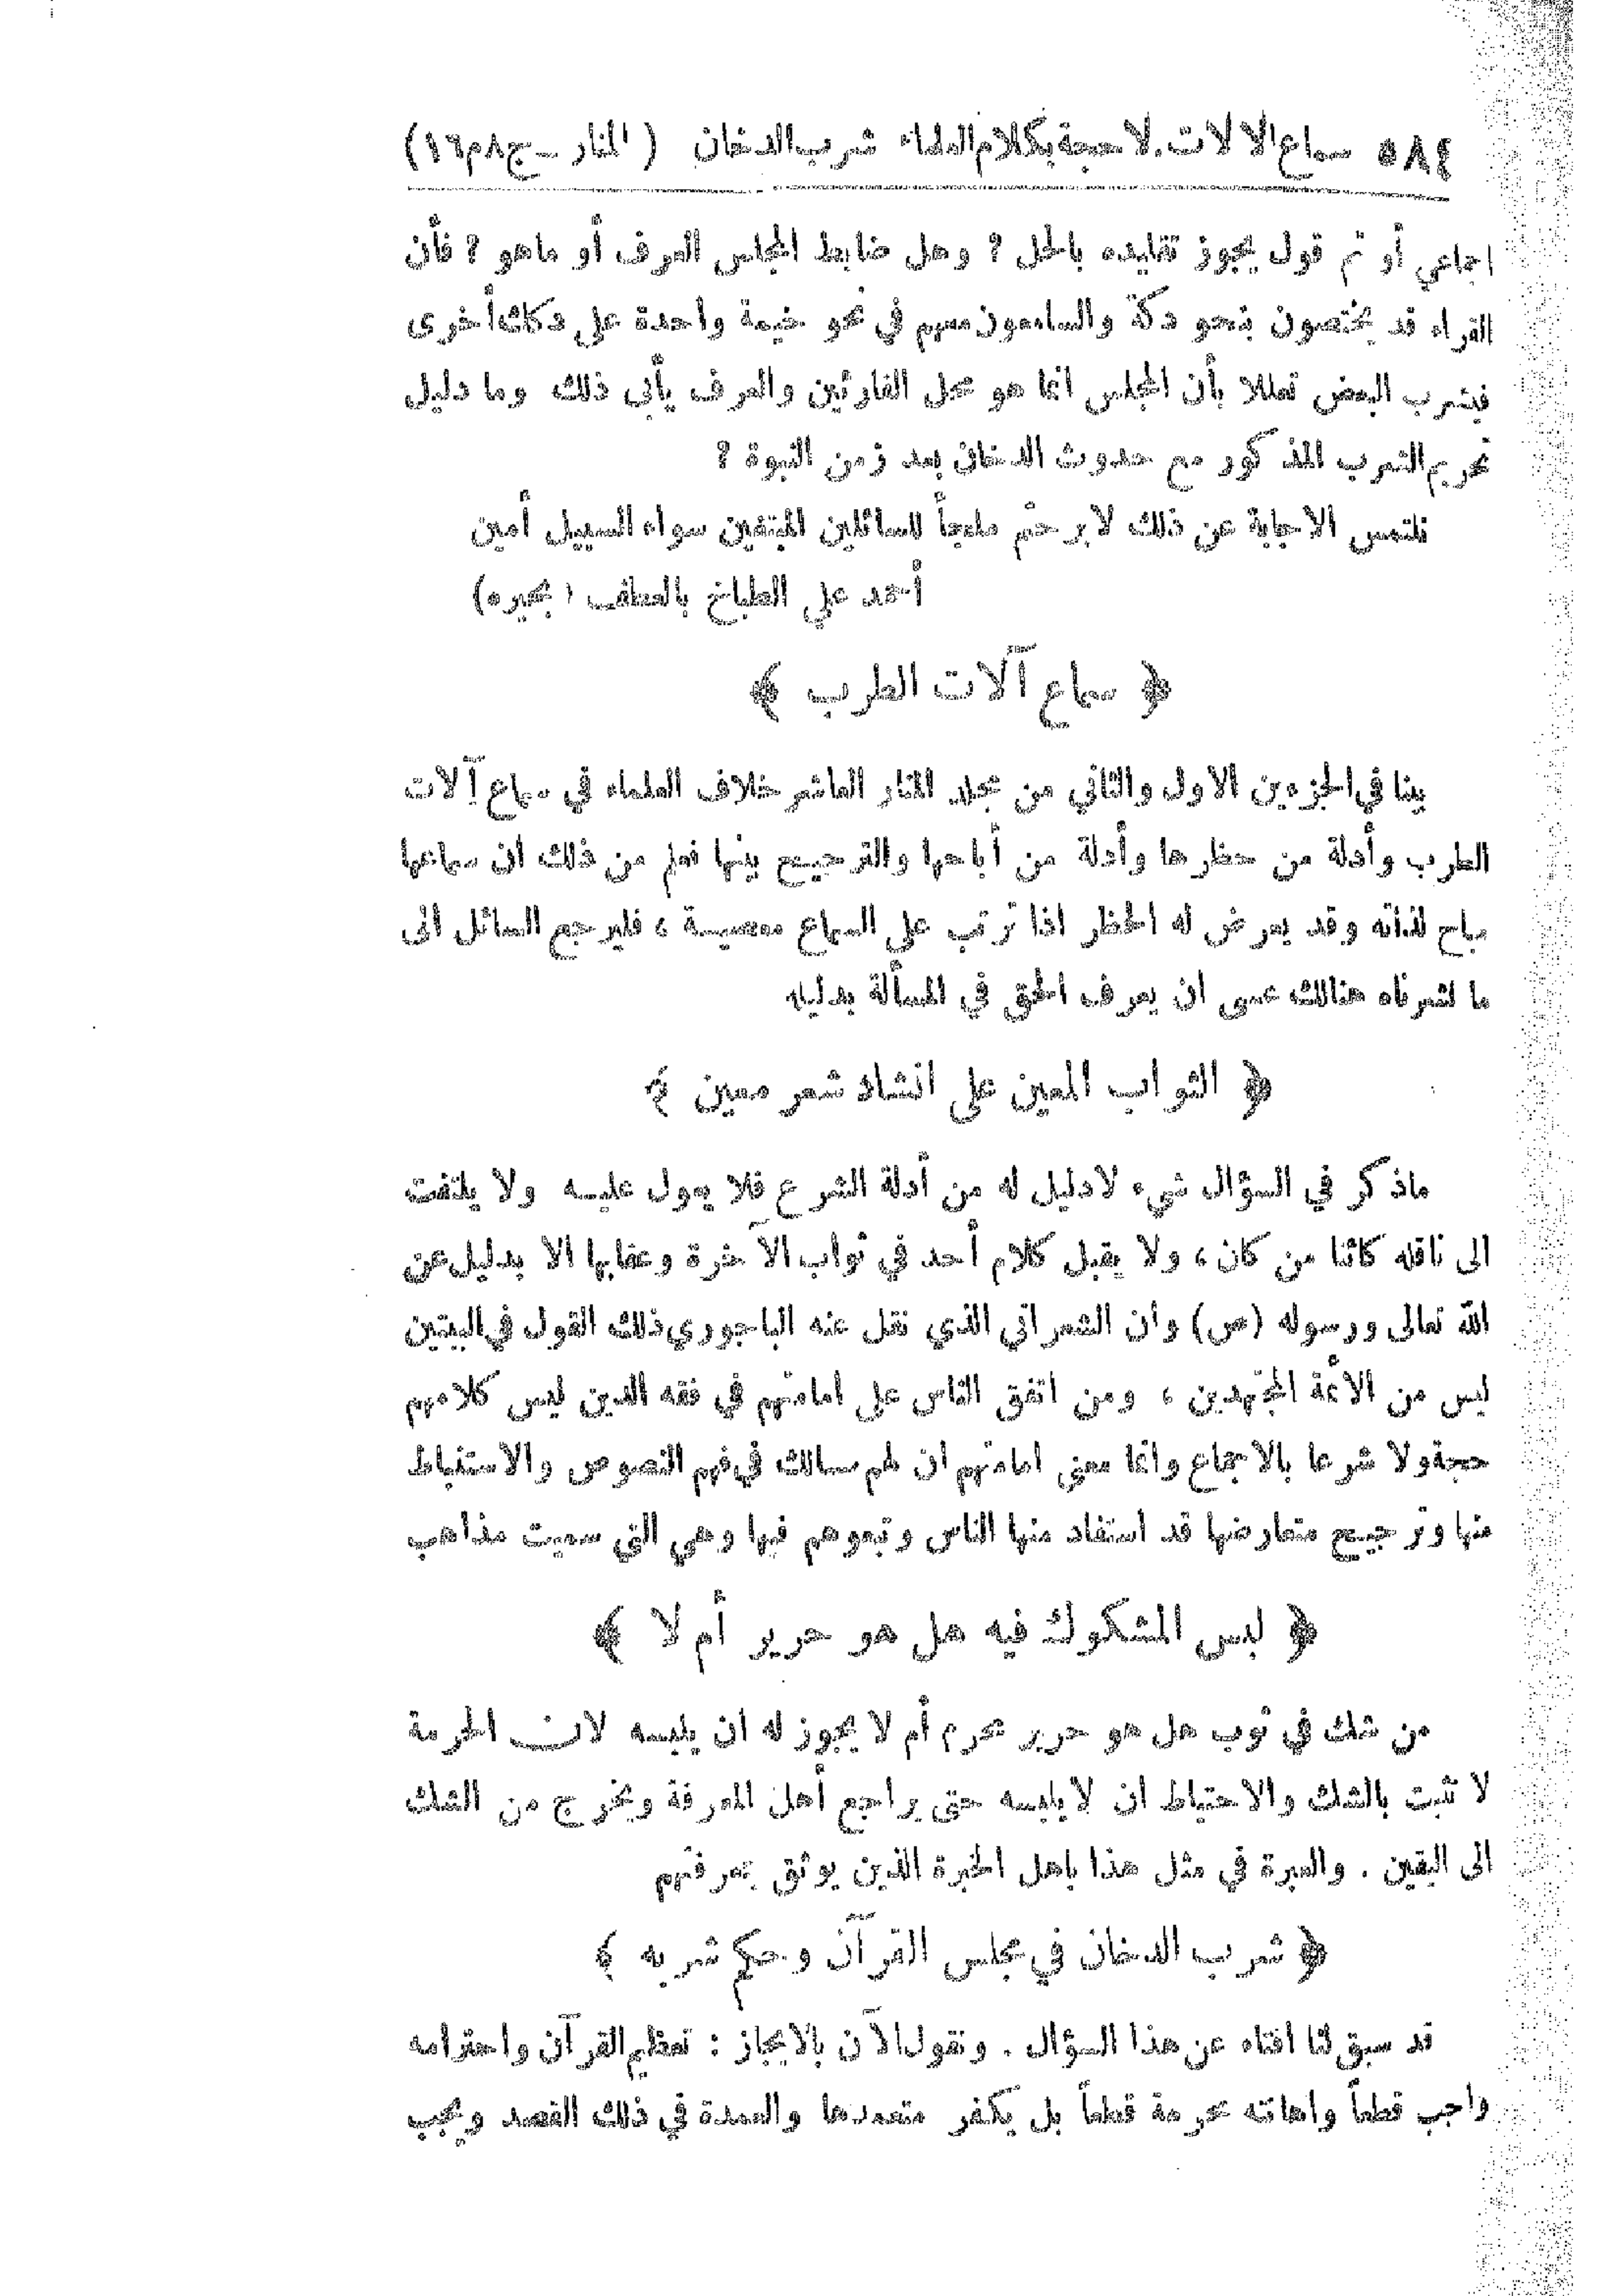 ٥٨٤ سماع الآلات. لا حجة بكلام العلماء شرب الدخان (المنار ــ ج٨م١٦)
اجماعي أو ثم قول يجوز تقليده بالحل ? وهل ضابط المجلس العرف أو ماهو ? فأن
القراء قد يختصون بنحو دكة والسامعون معهم في نحو خيمة واحدة على دكك أخرى
فيشرب البعض تعللا بأن المجلس انما هو محل القارئين والعرف يأبى ذلك وما دليل
تحريم الشرب المذكور مع حدوث الدخان بعد زمن النبوة ?
نلتمس الاجابة عن ذلك لا برحتم ملجأ للسائلين المبتغين سواء السبيل أمين
أحمد علي الطباخ بالعطف (بحيره)
﴿ سماع آلات الطرب ﴾
بينا في الجزءين الاول والثاني من مجلد المنار العاشر خلاف العلماء في سماع آلات
الطرب وأدلة من حظرها وأدلة من أباحها والترجيح بينها فعلم من ذلك ان سماعها
مباح لذاته وقد يعرض له الحظر اذا ترتب على السماع معصية ، فليرجع السائل الى
ما نشرناه هنالك عسى ان يعرف الحق في المسألة بدليله
﴿ الثواب المعين على انشاد شعر معين ﴾
ماذكر في السؤال شيء لا دليل له من أدلة الشرع فلا يعول عليه ولا يلتفت
الى ناقله كائنا من كان ، ولا يقبل كلام أحد في ثواب الآخرة وعقابها الا بدليل عن
الله تعالى ورسوله (ص) وان الشعراني الذي نقل عنه الباجوري ذلك القول في البيتين
ليس من الأئمة المجتهدين ، ومن اتفق الناس على امامتهم في فقه الدين ليس كلامهم
حجة ولا شرعا بالاجماع وانما معنى امامتهم ان لهم مسالك في فهم النصوص والاستنباط
منها وترجيح متعارضها قد استفاد منها الناس وتبعوهم فيها وهي التي سميت مذاهب
﴿ لبس المشكوك فيه هل هو حرير أم لا ﴾
من شك في ثوب هل هو حرير محرم أم لا يجوز له ان يلبسه لان الحرمة
لا تثبت بالشك والاحتياط ان لا يلبسه حتى يراجع أهل المعرفة ويخرج من الشك
الى اليقين . والعبرة في مثل هذا باهل الخبرة الذين يوثق بمعرفتهم
﴿ شرب الدخان في مجلس القرآن وحكم شربه ﴾
قد سبق لنا افتاء عن هذا السؤال . ونقول الآن بالايجاز : تعظيم القرآن واحترامه
واجب قطعاً واهانته محرمة قطعاً بل يكفر متعمدها والعمدة في ذلك القصد ويجب